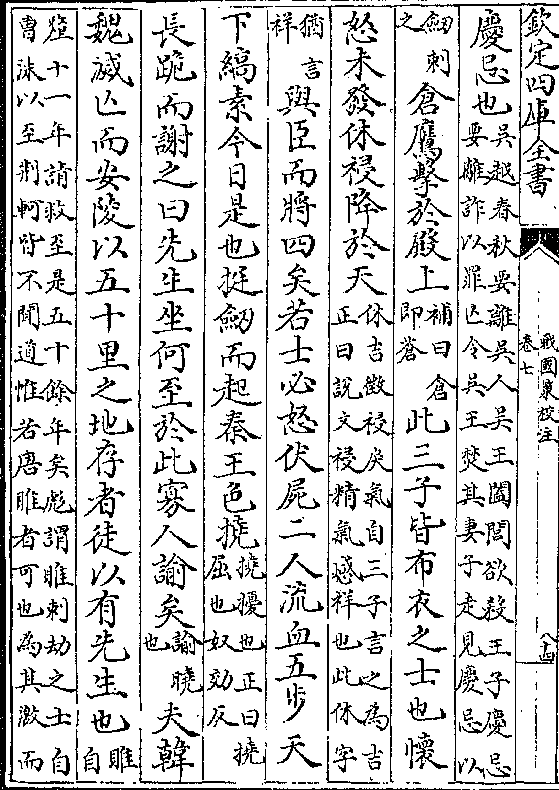 欽定四庫全書
戰國策校注
卷七
八十四
慶忌也吳越春秋要離吳人吳王闔閭欲殺王子慶忌要離詐以罪亡令吳王焚其妻子走見慶忌以
劒刺之倉鷹擊於殿上補曰倉即蒼此三子皆布衣之士也懷
怒未發休祲降於天休吉徵祲戾氣自三子言之為吉正曰說文祲精氣感祥也此休字
猶言祥與臣而將四矣若士必怒伏屍二人流血五步天
下縞素今日是也挺劒而起秦王色撓撓擾也正曰撓屈也奴効反
長跪而謝之曰先生坐何至於此寡人諭矣諭曉也夫韓
魏滅亡而安陵以五十里之地存者徒以有先生也睢自
釐十一年請救至是五十餘年矣彪謂睢刺劫之士自曹沬以至荆軻皆不聞道惟若唐睢者可也為其激而